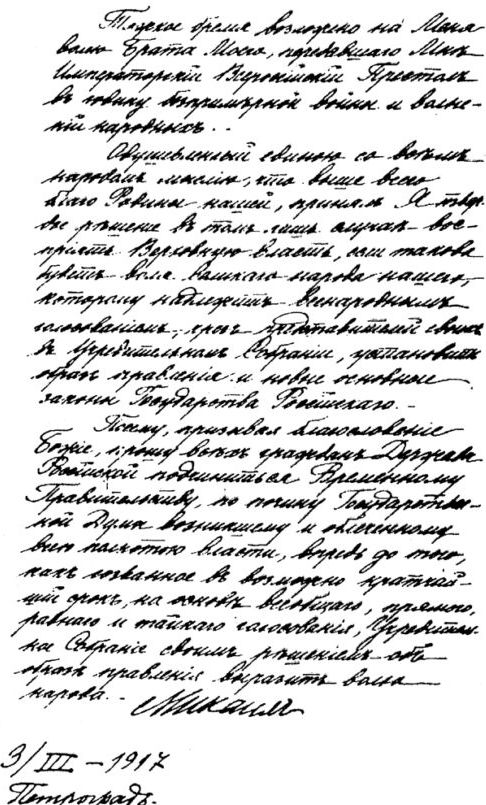 Тяжкое бремя возложено на Меня
волею Брата Моего, передавшего Мнѣ
Императорскій Всероссійскій Престолъ
въ годину безпримѣрной войны и волне-
ній народныхъ..
Одушевленный единою со всѣмъ
народомъ мыслію, что выше всего
благо Родины нашей, принялъ Я твер-
дое рѣшеніе въ томъ лишь случаѣ вос-
пріять Верховную власть, если такова
будетъ воля великаго народа нашего,
которому надлежитъ всенароднымъ
голосованіемъ, чрезъ представителей своихъ
въ Учредительномъ Собраніи, установить
образъ правленія и новые основные
законы Государства Россійскаго. -
Посему, призывая благословеніе
Божіе, прошу всѣхъ гражданъ Державы
Россійской подчиниться Временному
Правительству, по почину Государствен-
ной Думы возникшему и облеченному
всею полнотою власти, впредь до того,
какъ созванное въ возможно кратчай-
шій срокъ, на основѣ всеобщаго, прямого,
равнаго и тайнаго голосованія, Учредитель-
ное Собраніе своимъ рѣшеніемъ объ
образѣ правленія выразитъ волю
народа. -
Михаилъ
3/III - 1917
Петроградъ.